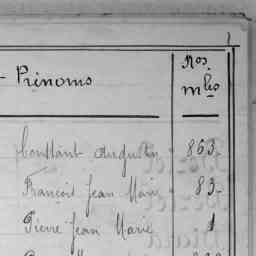 Prénoms Nos mles
Constant Augustin 863
François Jean Marie 83
Pierre Jean Marie 1